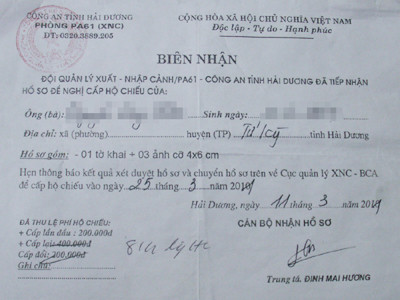 CÔNG AN TỈNH HẢI DƯƠNG
PHÒNG PA61 (XNC)
ĐT: 0320.3889.205
CỘNG HÒA XÃ HỘI CHỦ NGHĨA VIỆT NAM
Độc lập - Tự do - Hạnh phúc
BIÊN NHẬN
ĐỘI QUẢN LÝ XUẤT - NHẬP CẢNH/PA61 - CÔNG AN TỈNH HẢI DƯƠNG ĐÃ TIẾP NHẬN
HỒ SƠ ĐỀ NGHỊ CẤP HỘ CHIẾU CỦA:
Ông (bà): Sinh ngày:
Địa chỉ: xã (phường) huyện (TP) Tứ Kỳ tỉnh Hải Dương
Hồ sơ gồm: - 01 tờ khai + 03 ảnh cỡ 4x6 cm
Hẹn thông báo kết quả xét duyệt hồ sơ và chuyển hồ sơ trên về Cục quản lý XNC - BCA
để cấp hộ chiếu vào ngày 25 tháng 3 năm
Hải Dương, ngày 11 tháng 3 năm
ĐÃ THU LỆ PHÍ HỘ CHIẾU:
+ Cấp lần đầu: 200.000đ
+ Cấp lại: 400.000đ
Cấp đổi: 200.000đ
Ghi chú:
CÁN BỘ NHẬN HỒ SƠ
Trung tá. ĐINH MAI HƯƠNG